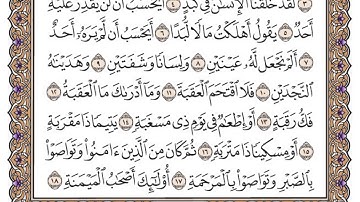 ٣ لَقَدْ خَلَقْنَا ٱلْإِنسَٰنَ فِي كَبَدٍ ٤ أَيَحْسَبُ أَن لَّن يَقْدِرَ عَلَيْهِ
أَحَدٌ ٥ يَقُولُ أَهْلَكْتُ مَالًا لُّبَدًا ٦ أَيَحْسَبُ أَن لَّمْ يَرَهُۥٓ أَحَدٌ
٧ أَلَمْ نَجْعَل لَّهُۥ عَيْنَيْنِ ٨ وَلِسَانًا وَشَفَتَيْنِ ٩ وَهَدَيْنَٰهُ
ٱلنَّجْدَيْنِ ١٠ فَلَا ٱقْتَحَمَ ٱلْعَقَبَةَ ١١ وَمَآ أَدْرَىٰكَ مَا ٱلْعَقَبَةُ ١٢
فَكُّ رَقَبَةٍ ١٣ أَوْ إِطْعَٰمٌ فِي يَوْمٍ ذِي مَسْغَبَةٍ ١٤ يَتِيمًا ذَا مَقْرَبَةٍ
١٥ أَوْ مِسْكِينًا ذَا مَتْرَبَةٍ ١٦ ثُمَّ كَانَ مِنَ ٱلَّذِينَ ءَامَنُوا۟ وَتَوَاصَوْا۟
بِٱلصَّبْرِ وَتَوَاصَوْا۟ بِٱلْمَرْحَمَةِ ١٧ أُو۟لَٰٓئِكَ أَصْحَٰبُ ٱلْمَيْمَنَةِ ١٨